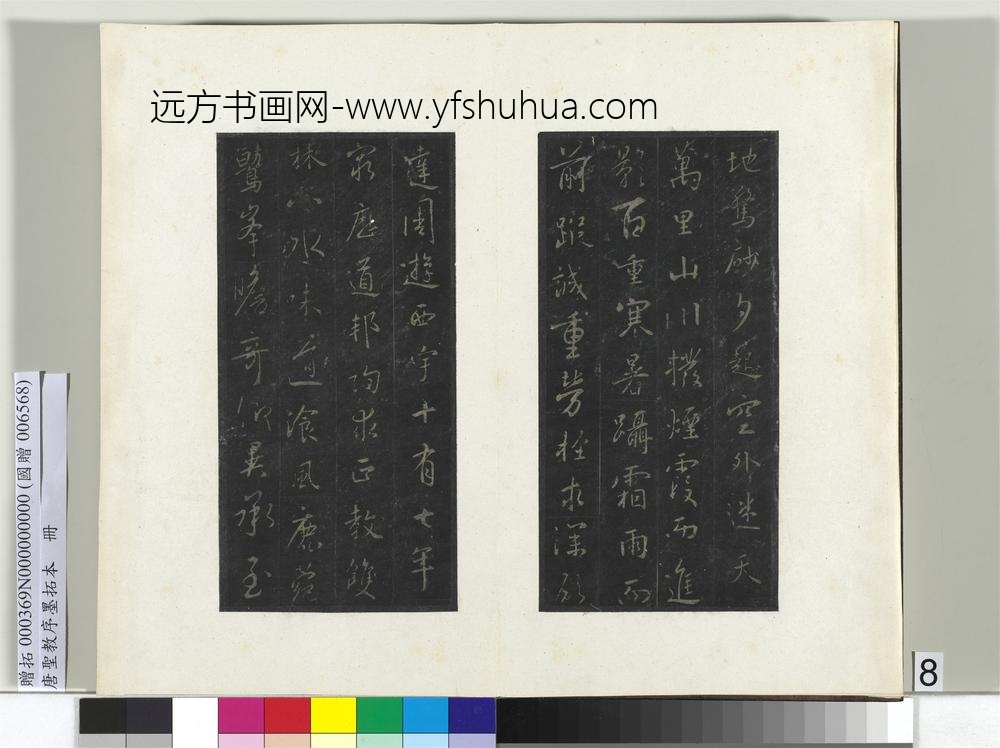 远方书画网-www.yfshuhua.com
地驚砂夕起空外迷天
萬里山川撥煙霞而進
影百重寒暑躡霜雨而
前蹤誠重勞輕求深願
達周遊西宇十有七年
窮歷道邦詢求正教雙
林八水味道飡風鹿菀
鷲峯瞻奇仰異承至
贈拓 000369N000000000 (國贈 006568)
唐聖教序墨拓本 冊
8